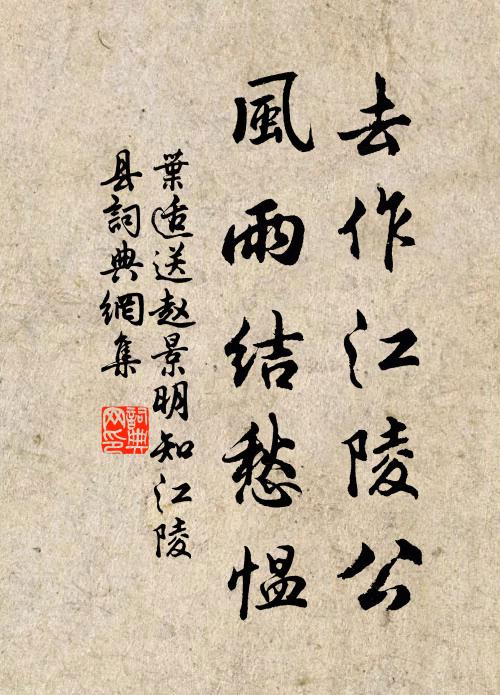 去作江陵公
風雨結愁愠
葉适送赵景明知江陵
县詞典網集
詞典网印